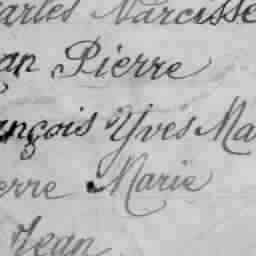 arles Narcisse
an Pierre
ançois Yves Ma
erre Marie
Jean